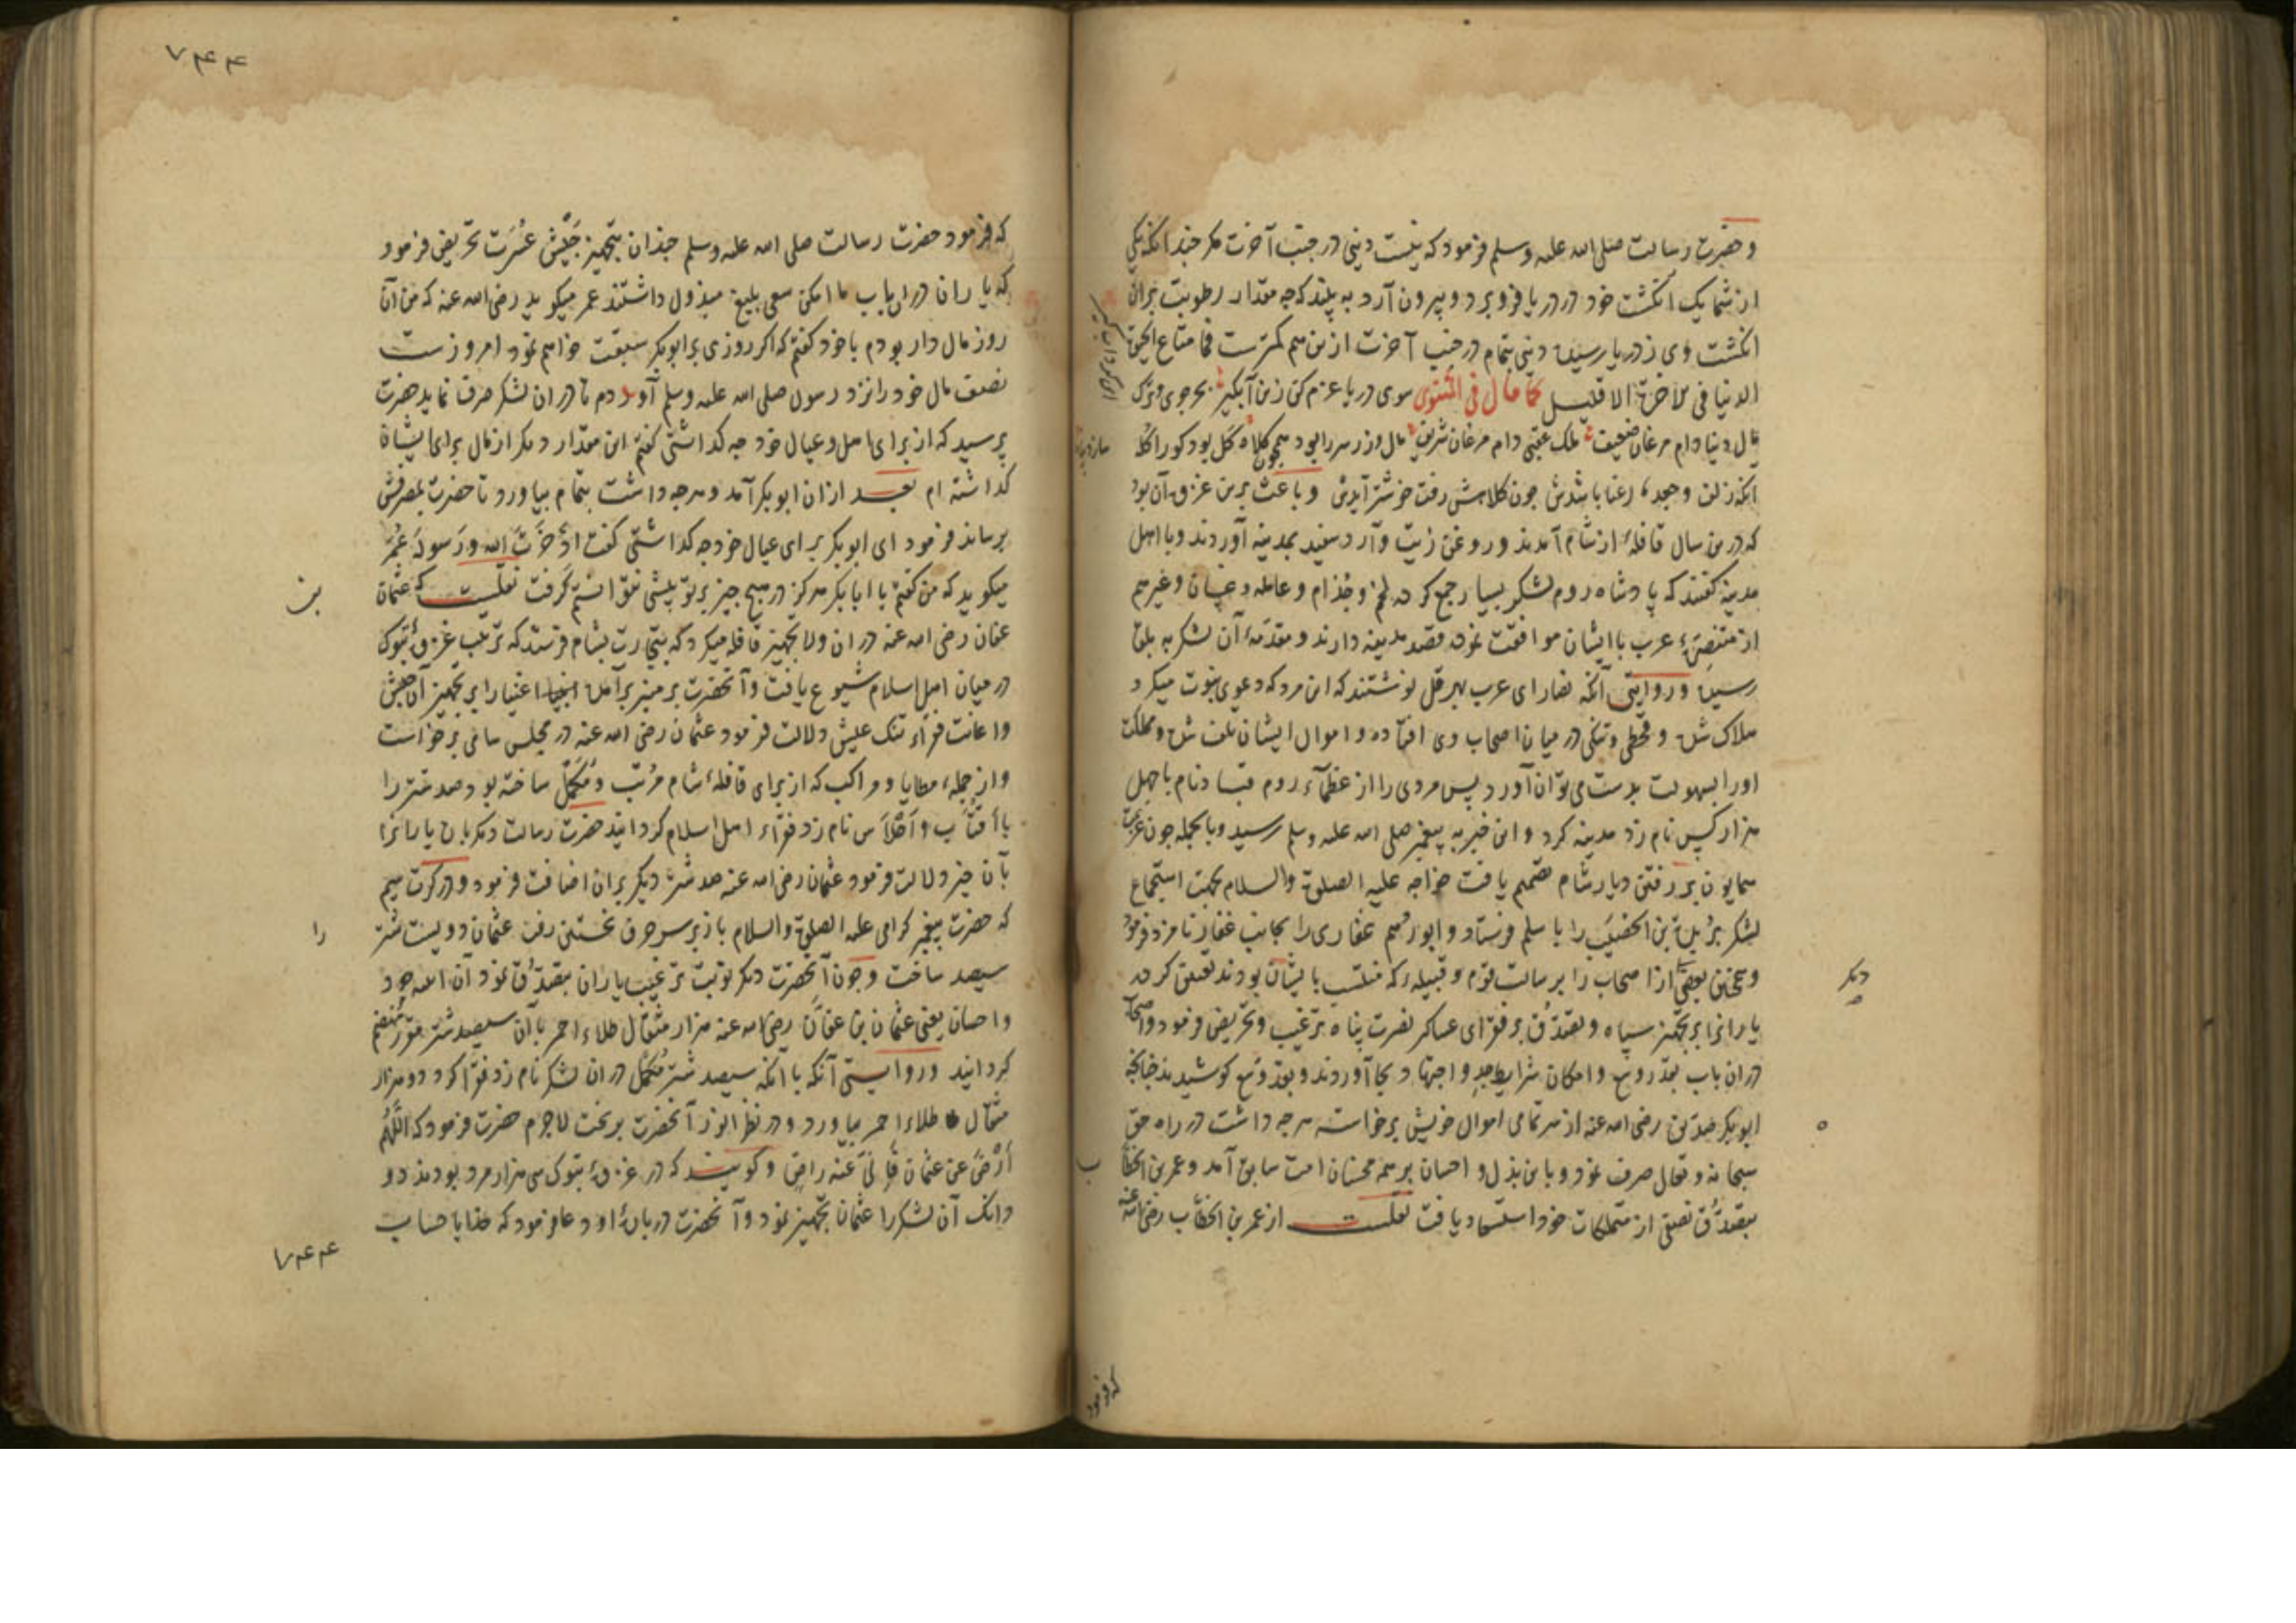 و حضرت رسالت صلی الله علیه وسلم فرمود که نیست دینی در جنب آخرت مکر جندانکه یکی
از شما یک انکشت خود در دریا فرو برد و بیرون آرد به بیند که جه مقدار رطوبت بران
انکشت وی ز دریا رسیده دینی بتمام در جنب آخرت ازین هم کمترست فما متاع الحیوة
الدنیا فی الاخرة الا قلیل کما قال فی المثنوی سوی دریا عزم کن زین آبکیر بحر جوی و ترک
مال دنیا دام مرغان ضعیف ملک عقبی دام مرغان شریف مال و زر سر را بود همچون کلاه کل بود کو را کله
آنکه زلف و جعد رعنا باشدش جون کلاهش رفت خوشتر آیدش و باعث برین غزوه آن بود
که درین سال قافلهٔ از شام آمدند و روغن زیت و آرد سفید بمدینه آوردند و با اهل
مدینه کفتند که پادشاه روم لشکر بسیار جمع کرده لخم و جذام و عامله و غسان و غیرهم
از متنصرهٔ عرب با ایشان موافقت نموده قصد مدینه دارند و مقدمهٔ آن لشکر به بلقا
رسیده و روایتی آنکه نصارای عرب بهرقل نوشتند که این مرد که دعوی نبوت میکرد
هلاک شده و قحطی و تنکی در میان اصحاب وی افتاده و اموال ایشان تلف شده و مملکت
او را بسهولت بدست می توان آورد پس مردی را از عظمآء روم قباد نام با جهل
هزار کس نام زد مدینه کرد و این خبر به پیغمبر صلی الله علیه وسلم رسید و بالجمله جون عزیمت
همایون بر رفتن دیار شام تصمیم یافت خواجه علیه الصلوة والسلام بجهت استجماع
لشکر بریدة بن الحصیب را با سلم فرستاد و ابو رهم غفاری را بجانب غفار نامزد فرمود
و همچنین بعضی از اصحاب را برسالت قوم و قبیلهٔ که منتسب بایشان بودند تعیین کرده
یارانرا بر تجهیز سپاه و تصدق بر فقرای عساکر نصرت پناه ترغیب و تحریض فرمود و اصحاب
در ان باب بقدر وسع و امکان شرایط جد و اجتهاد بجا آوردند و بقدر وسع کوشیدند جنانچه
ابوبکر صدیق رضی الله عنه از سر تمامی اموال خویش برخاسته هرجه داشت در راه حق
سبحانه و تعالی صرف نمود و باین بذل و احسان بر همه محسنان امت سابق آمد و عمر بن الخطاب
بتصدق نصفی از متملکات خود استسعاد یافت نقلست از عمر بن الخطاب رضی الله عنه
دیکر
که فرمود
۷۴۴
که فرمود حضرت رسالت صلی الله علیه وسلم جندان بتجهیز جیش عسرت تحریض فرمود
که یاران در ان باب ما امکن سعی بلیغ مبذول داشتند عمر میکوید رضی الله عنه که من آن
روز مال دار بودم با خود کفتم که اکر روزی بر ابوبکر سبقت خواهم نمود امروزست
نصف مال خود را نزد رسول صلی الله علیه وسلم آوردم تا در ان لشکر صرف نماید حضرت
پرسید که از برای اهل و عیال خود جه کداشتی کفتم این مقدار دیکر از مال برای ایشان
کداشته ام بعد ازان ابوبکر آمد و هرجه داشت بتمام بیاورد تا حضرت بمصرفش
برساند فرمود ای ابوبکر برای عیال خود جه کداشتی کفت ادخرت الله و رسوله عمر
میکوید که من کفتم یا ابابکر هرکز در هیچ جیز بر تو پیشی نتوانستم کرفت نقلست که عثمان بن
عفان رضی الله عنه در ان ولا تجهیز قافله میکرد که بتجارت بشام فرستد که ترتیب غزوهٔ تبوک
در میان اهل اسلام شیوع یافت و آنحضرت بر منبر برآمده اغنیا را بر تجهیز آن جیش
و اعانت فقراء تنک عیش دلالت فرمود عثمان رضی الله عنه در مجلس سامی برخواست
و از جمله مطایا و مراکب که از برای قافلهٔ شام مرتب و مکمل ساخته بود صد شتر را
با اقتاب و احلاس نام زد فقراء اهل اسلام کردانید حضرت رسالت دیکر باره یارانرا
بآن خیر دلالت فرمود عثمان رضی الله عنه صد شتر دیکر بران اضافت فرمود و در کرت سیم
که حضرت پیغمبر کرامی علیه الصلوة والسلام باز بر سر حرف نخستین رفت عثمان دویست شتر را
سیصد ساخت و جون آنحضرت دیکر نوبت ترغیب یاران بتصدق نمود آن اهل جود
و احسان یعنی عثمان بن عفان رضی الله عنه هزار مثقال طلاء احمر بآن سیصد شتر منضم
کردانید و روایتی آنکه با آنکه سیصد شتر مکمل در ان لشکر نام زد فقرا کرد دو هزار
مثقال طلاء احمر بیاورد و در نظر انور آنحضرت بریخت لاجرم حضرت فرمود که اللهم
ارض عن عثمان فانی عنه راض و کویند که در غزوهٔ تبوک سی هزار مرد بودند دو
دانک آن لشکر را عثمان تجهیز نمود و آنحضرت دربارهٔ او دعا فرمود که خدایا حساب
۷۴۴